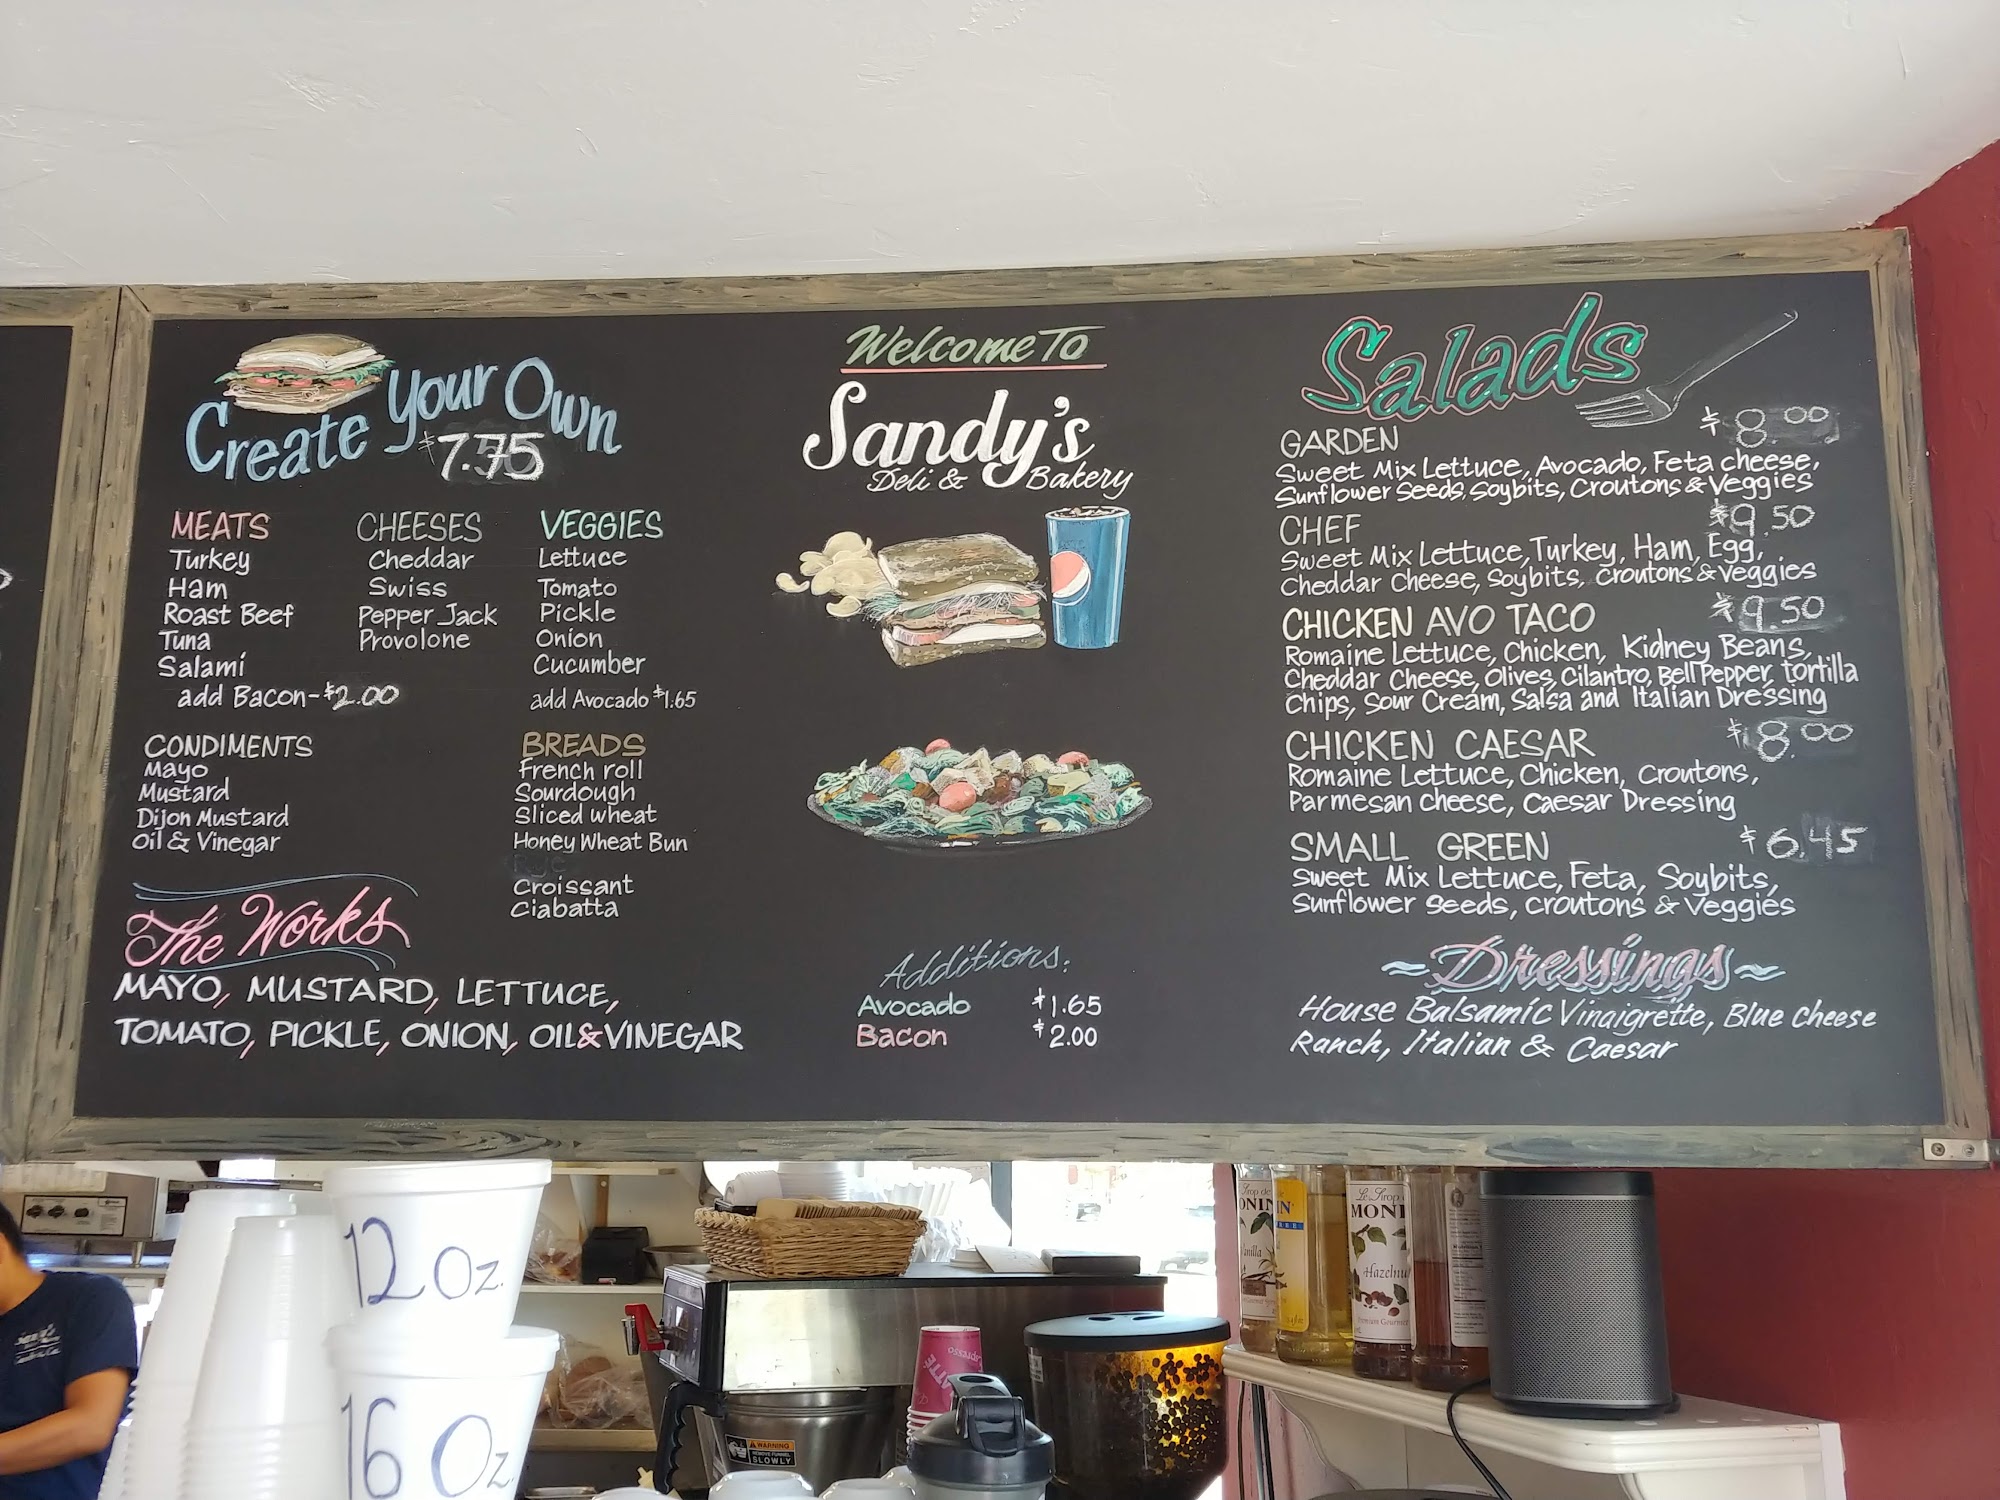 Create Your Own
$7.75
MEATS
Turkey
Ham
Roast Beef
Tuna
Salami
add Bacon-$2.00
CHEESES
Cheddar
Swiss
Pepper Jack
Provolone
VEGGIES
Lettuce
Tomato
Pickle
Onion
Cucumber
add Avocado $1.65
CONDIMENTS
Mayo
Mustard
Dijon Mustard
Oil & Vinegar
BREADS
French roll
Sourdough
Sliced wheat
Honey Wheat Bun
Croissant
Ciabatta
The Works
MAYO, MUSTARD, LETTUCE,
TOMATO, PICKLE, ONION, OIL&VINEGAR
Welcome To
Sandy's
Deli & Bakery
Additions:
Avocado $1.65
Bacon $2.00
Salads
GARDEN $8.00
Sweet Mix Lettuce, Avocado, Feta cheese,
Sunflower Seeds, Soybits, Croutons & Veggies
CHEF $9.50
Sweet Mix Lettuce, Turkey, Ham, Egg,
Cheddar Cheese, Soybits, Croutons & Veggies
CHICKEN AVO TACO $9.50
Romaine Lettuce, Chicken, Kidney Beans,
Cheddar Cheese, Olives, Cilantro, Bell Pepper, tortilla
Chips, Sour Cream, Salsa and Italian Dressing
CHICKEN CAESAR $8.00
Romaine Lettuce, Chicken, Croutons,
Parmesan cheese, Caesar Dressing
SMALL GREEN $6.45
Sweet Mix Lettuce, Feta, Soybits,
Sunflower Seeds, croutons & Veggies
~Dressings~
House Balsamic Vinaigrette, Blue cheese
Ranch, Italian & Caesar
12 Oz.
16 Oz.
WARNING
REMOVE FUNNEL
SLOWLY
Le Sirop
MONI
Hazelnu